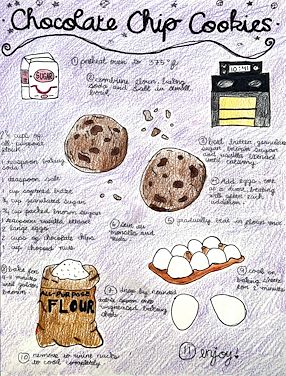 Chocolate Chip Cookies
① preheat oven to 375°f
SUGAR
10:41
② combine flour, baking
soda and salt in small
bowl
2 ¼ cups of
all-purpose
flour
1 teaspoon baking
soda
1 teaspoon salt
1 cup softened butter
¾ cup granulated sugar
¾ cup packed brown sugar
1 teaspoon vanilla extract
2 large eggs
2 cups of chocolate chips
1 cup chopped nuts
③ beat butter, granulated
sugar, brown sugar
and vanilla extract
until creamy
④ Add eggs, one
at a time, beating
after each
addition
⑤ gradually beat in flour mix
⑥ stir in
morsels and
nuts
⑦ drop by rounded
table spoon onto
ungreased baking
sheets
⑧ bake for
9-11 minutes
until golden
brown
ALL-PURPOSE
FLOUR
⑨ cool on
baking sheets
for 2 minutes
10 remove to wire racks
to cool completely
11 enjoy!